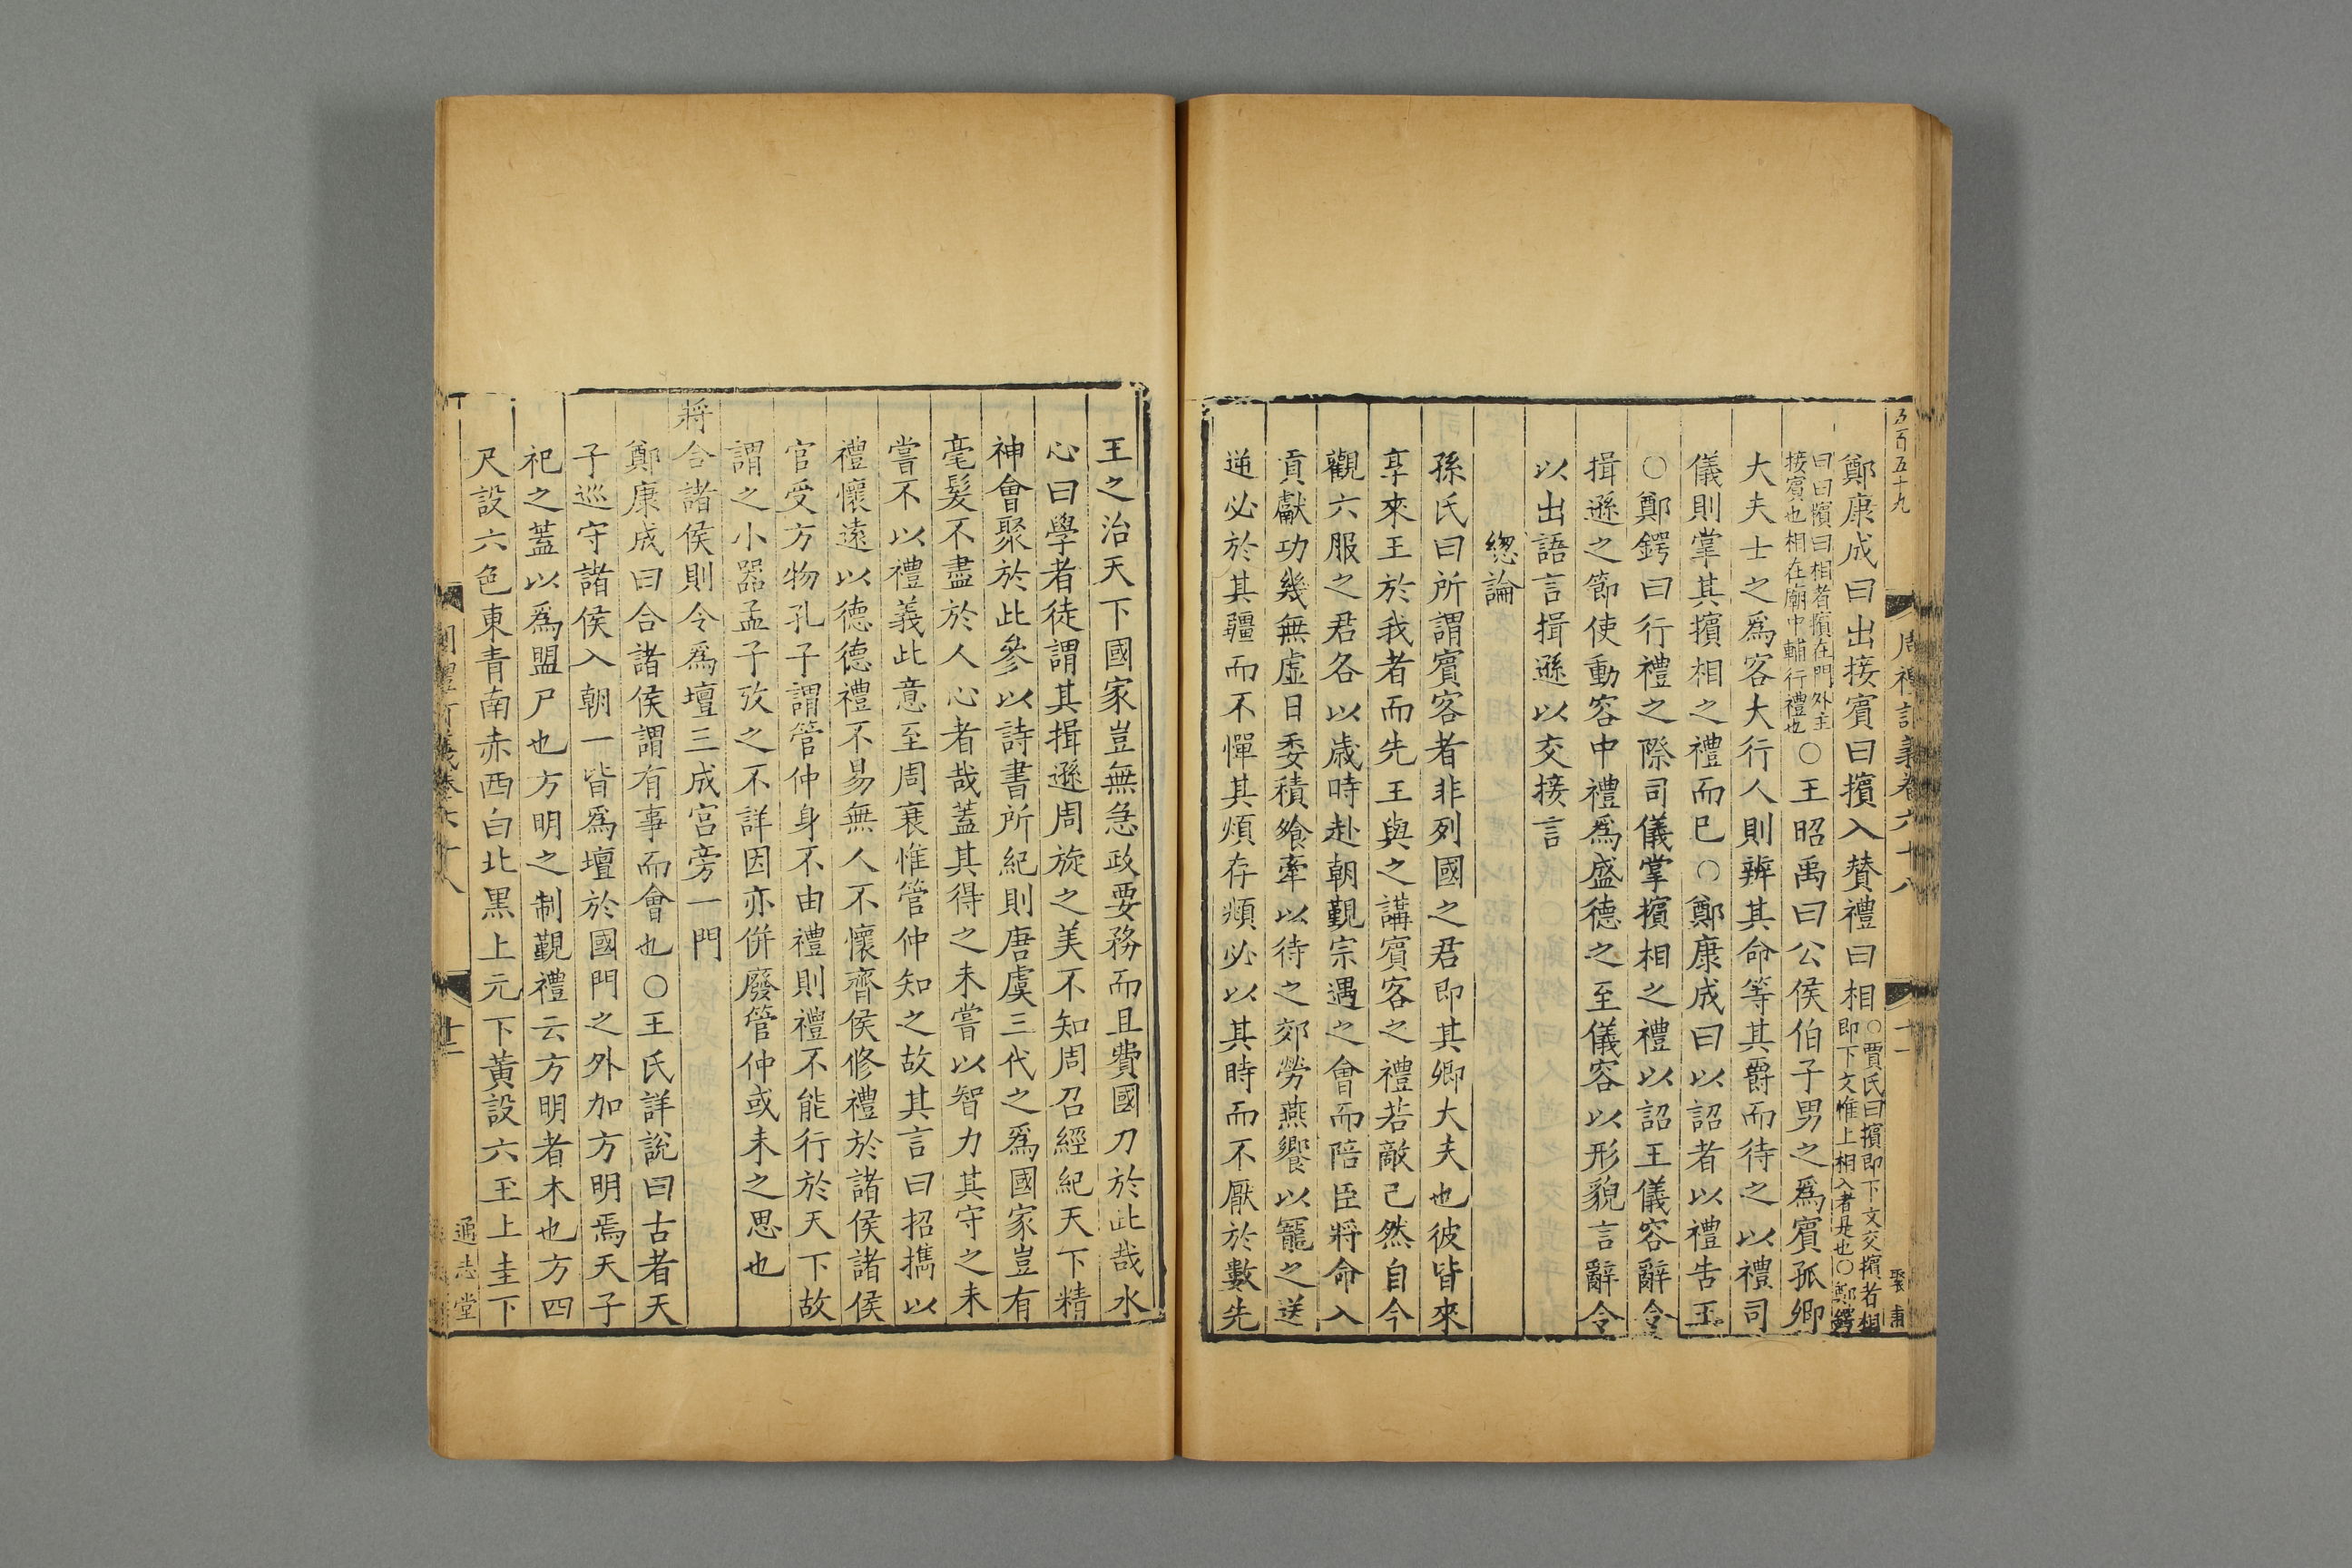 五百五十九
周禮訂義卷六十八
十一
鄭康成曰出接賓曰擯入賛禮曰相○賈氏曰擯即下文交擯者相即下文惟上相入者是也○鄭鍔
曰曰擯曰相者擯在門外主接賓也相在廟中輔行禮也○王昭禹曰公侯伯子男之爲賓孤卿
大夫士之爲客大行人則辨其命等其爵而待之以禮司
儀則掌其擯相之禮而已○鄭康成曰以詔者以禮告王
○鄭鍔曰行禮之際司儀掌擯相之禮以詔王儀容辭令
揖遜之節使動容中禮爲盛德之至儀容以形貌言辭令
以出語言揖遜以交接言
緫論
孫氏曰所謂賓客者非列國之君即其卿大夫也彼皆來
享來王於我者而先王與之講賓客之禮若敵己然自今
觀六服之君各以歲時赴朝覲宗遇之會而陪臣將命入
貢獻功幾無虛日委積飱牽以待之郊勞燕饗以寵之送
逆必於其疆而不憚其煩存頫必以其時而不厭於數先
王之治天下國家豈無急政要務而且費國力於此哉水
心曰學者徒謂其揖遜周旋之美不知周召經紀天下精
神會聚於此參以詩書所紀則唐虞三代之爲國家豈有
毫髮不盡於人心者哉蓋其得之未嘗以智力其守之未
嘗不以禮義此意至周衰惟管仲知之故其言曰招攜以
禮懷遠以德德禮不易無人不懷齊侯修禮於諸侯諸侯
官受方物孔子謂管仲身不由禮則禮不能行於天下故
謂之小器孟子攷之不詳因亦併廢管仲或未之思也
將合諸侯則令爲壇三成宮旁一門
鄭康成曰合諸侯謂有事而會也○王氏詳說曰古者天
子巡守諸侯入朝一皆爲壇於國門之外加方明焉天子
祀之蓋以爲盟尸也方明之制覲禮云方明者木也方四
尺設六色東青南赤西白北黑上元下黃設六玉上圭下
十二
通志堂